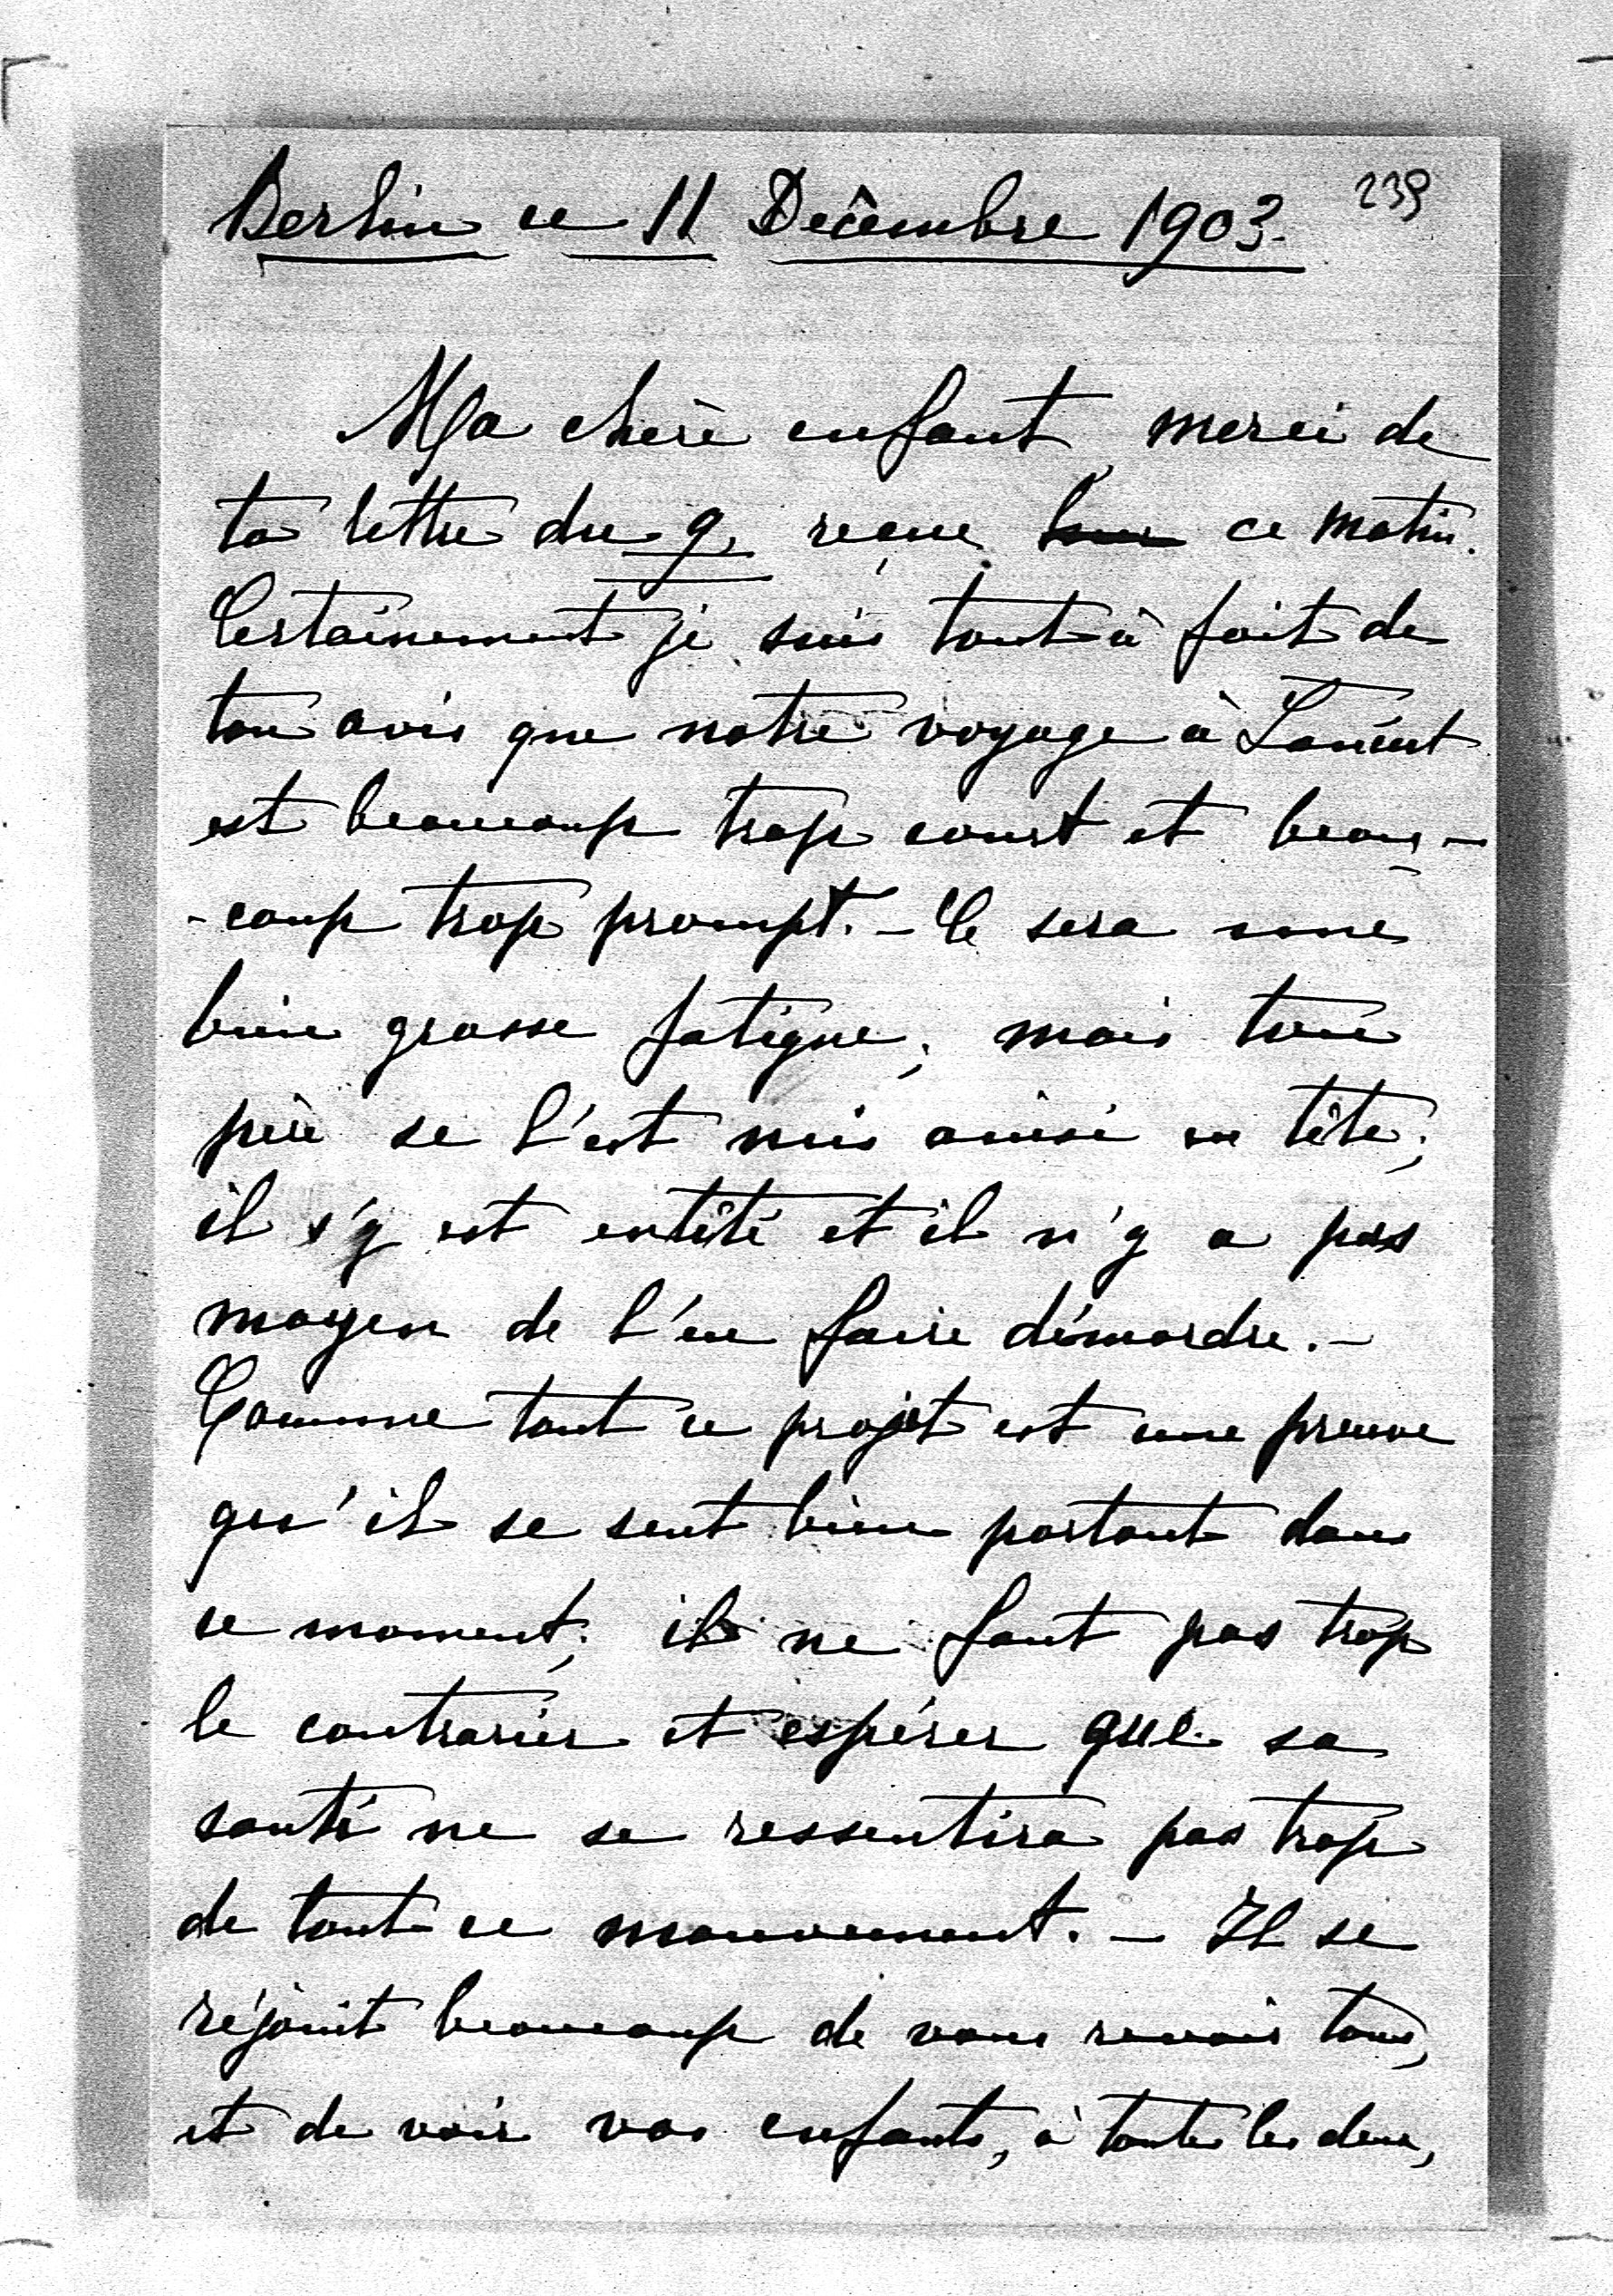 Berlin ce 11 Decembre 1903. 239
Ma chère enfant, merci de
ta lettre du 9, reçue ce matin.
Certainement je suis tout à fait de
ton avis que notre voyage à
est beaucoup trop court et beau-
-coup trop prompt. – Ce sera une
bien grosse fatigue; mais ton
père se l'est mis ainsi en tête;
il s'y est entêté et il n'y a pas
moyen de l'en faire démordre. –
Comme tout ce projet est une preuve
qu'il se sent bien portant dans
ce moment; il ne faut pas trop
le contrarier et espérer que sa
santé ne se ressentira pas trop
de tout ce mouvement. – Il se
réjouit beaucoup de vous revoir tous,
et de voir vos enfants, à toutes les deux,